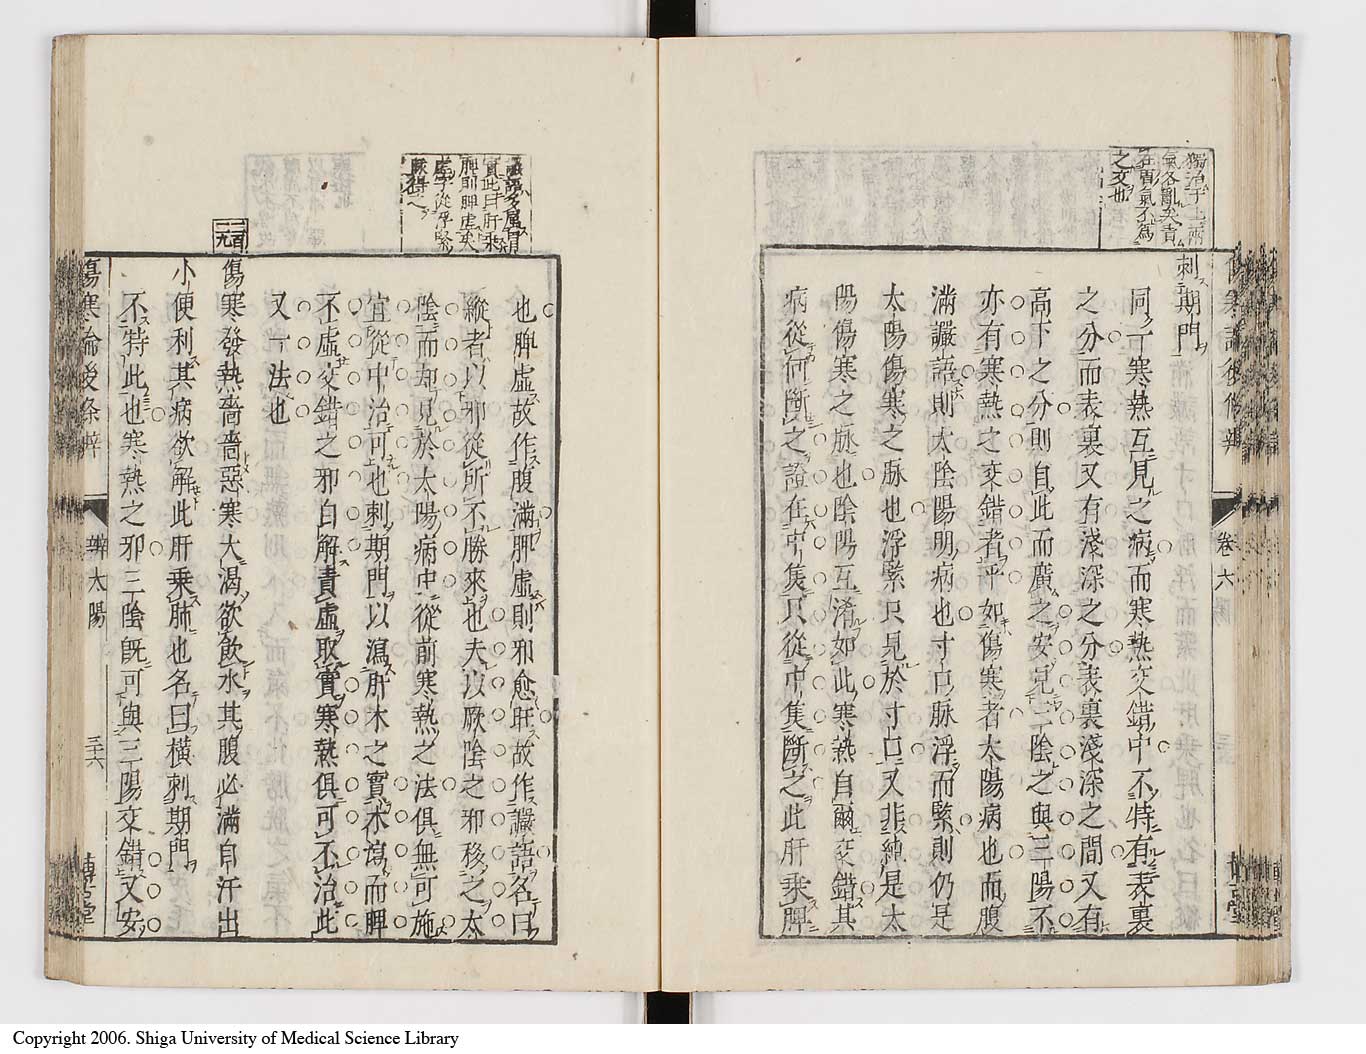 獨治于上兩
氣各亂矣責
在胃氣不爲
之交也
刺期門
同一寒熱互見之病而寒熱交錯中不特有表裏
之分而表裏又有淺深之分表裏淺深之間又有
高下之分則自此而廣之安見三陰之與三陽不
亦有寒熱之交錯者乎如傷寒者太陽病也而腹
滿讝語則太陰陽明病也寸口脉浮而緊則仍是
太陽傷寒之脉也浮緊只見於寸口又非純是太
陽傷寒之脉也陰陽互淆如此寒熱自爾交錯其
病從何斷之證在中焦只從中焦斷之此肝乘脾
卷六
讝語多屬胃
實此曰肝乘
脾則脾虛矣
虛字從浮緊
脉得之
也脾虛故作腹滿脾虛則邪愈旺故作讝語名曰
縱者以邪從所不勝來也夫以厥陰之邪移之太
陰而却見於太陽病中從前寒熱之法俱無可施
宜從中治可也刺期門以瀉肝木之實木瀉而脾
不虛交錯之邪自解責虛取實寒熱俱可不治此
又一法也
百二九
傷寒發熱嗇嗇惡寒大渴欲飮水其腹必滿自汗出
小便利其病欲解此肝乘肺也名曰橫刺期門
不特此也寒熱之邪三陰旣可與三陽交錯又安
傷寒論後條辨
辨太陽
三六
博古堂
Copyright 2006. Shiga University of Medical Science Library